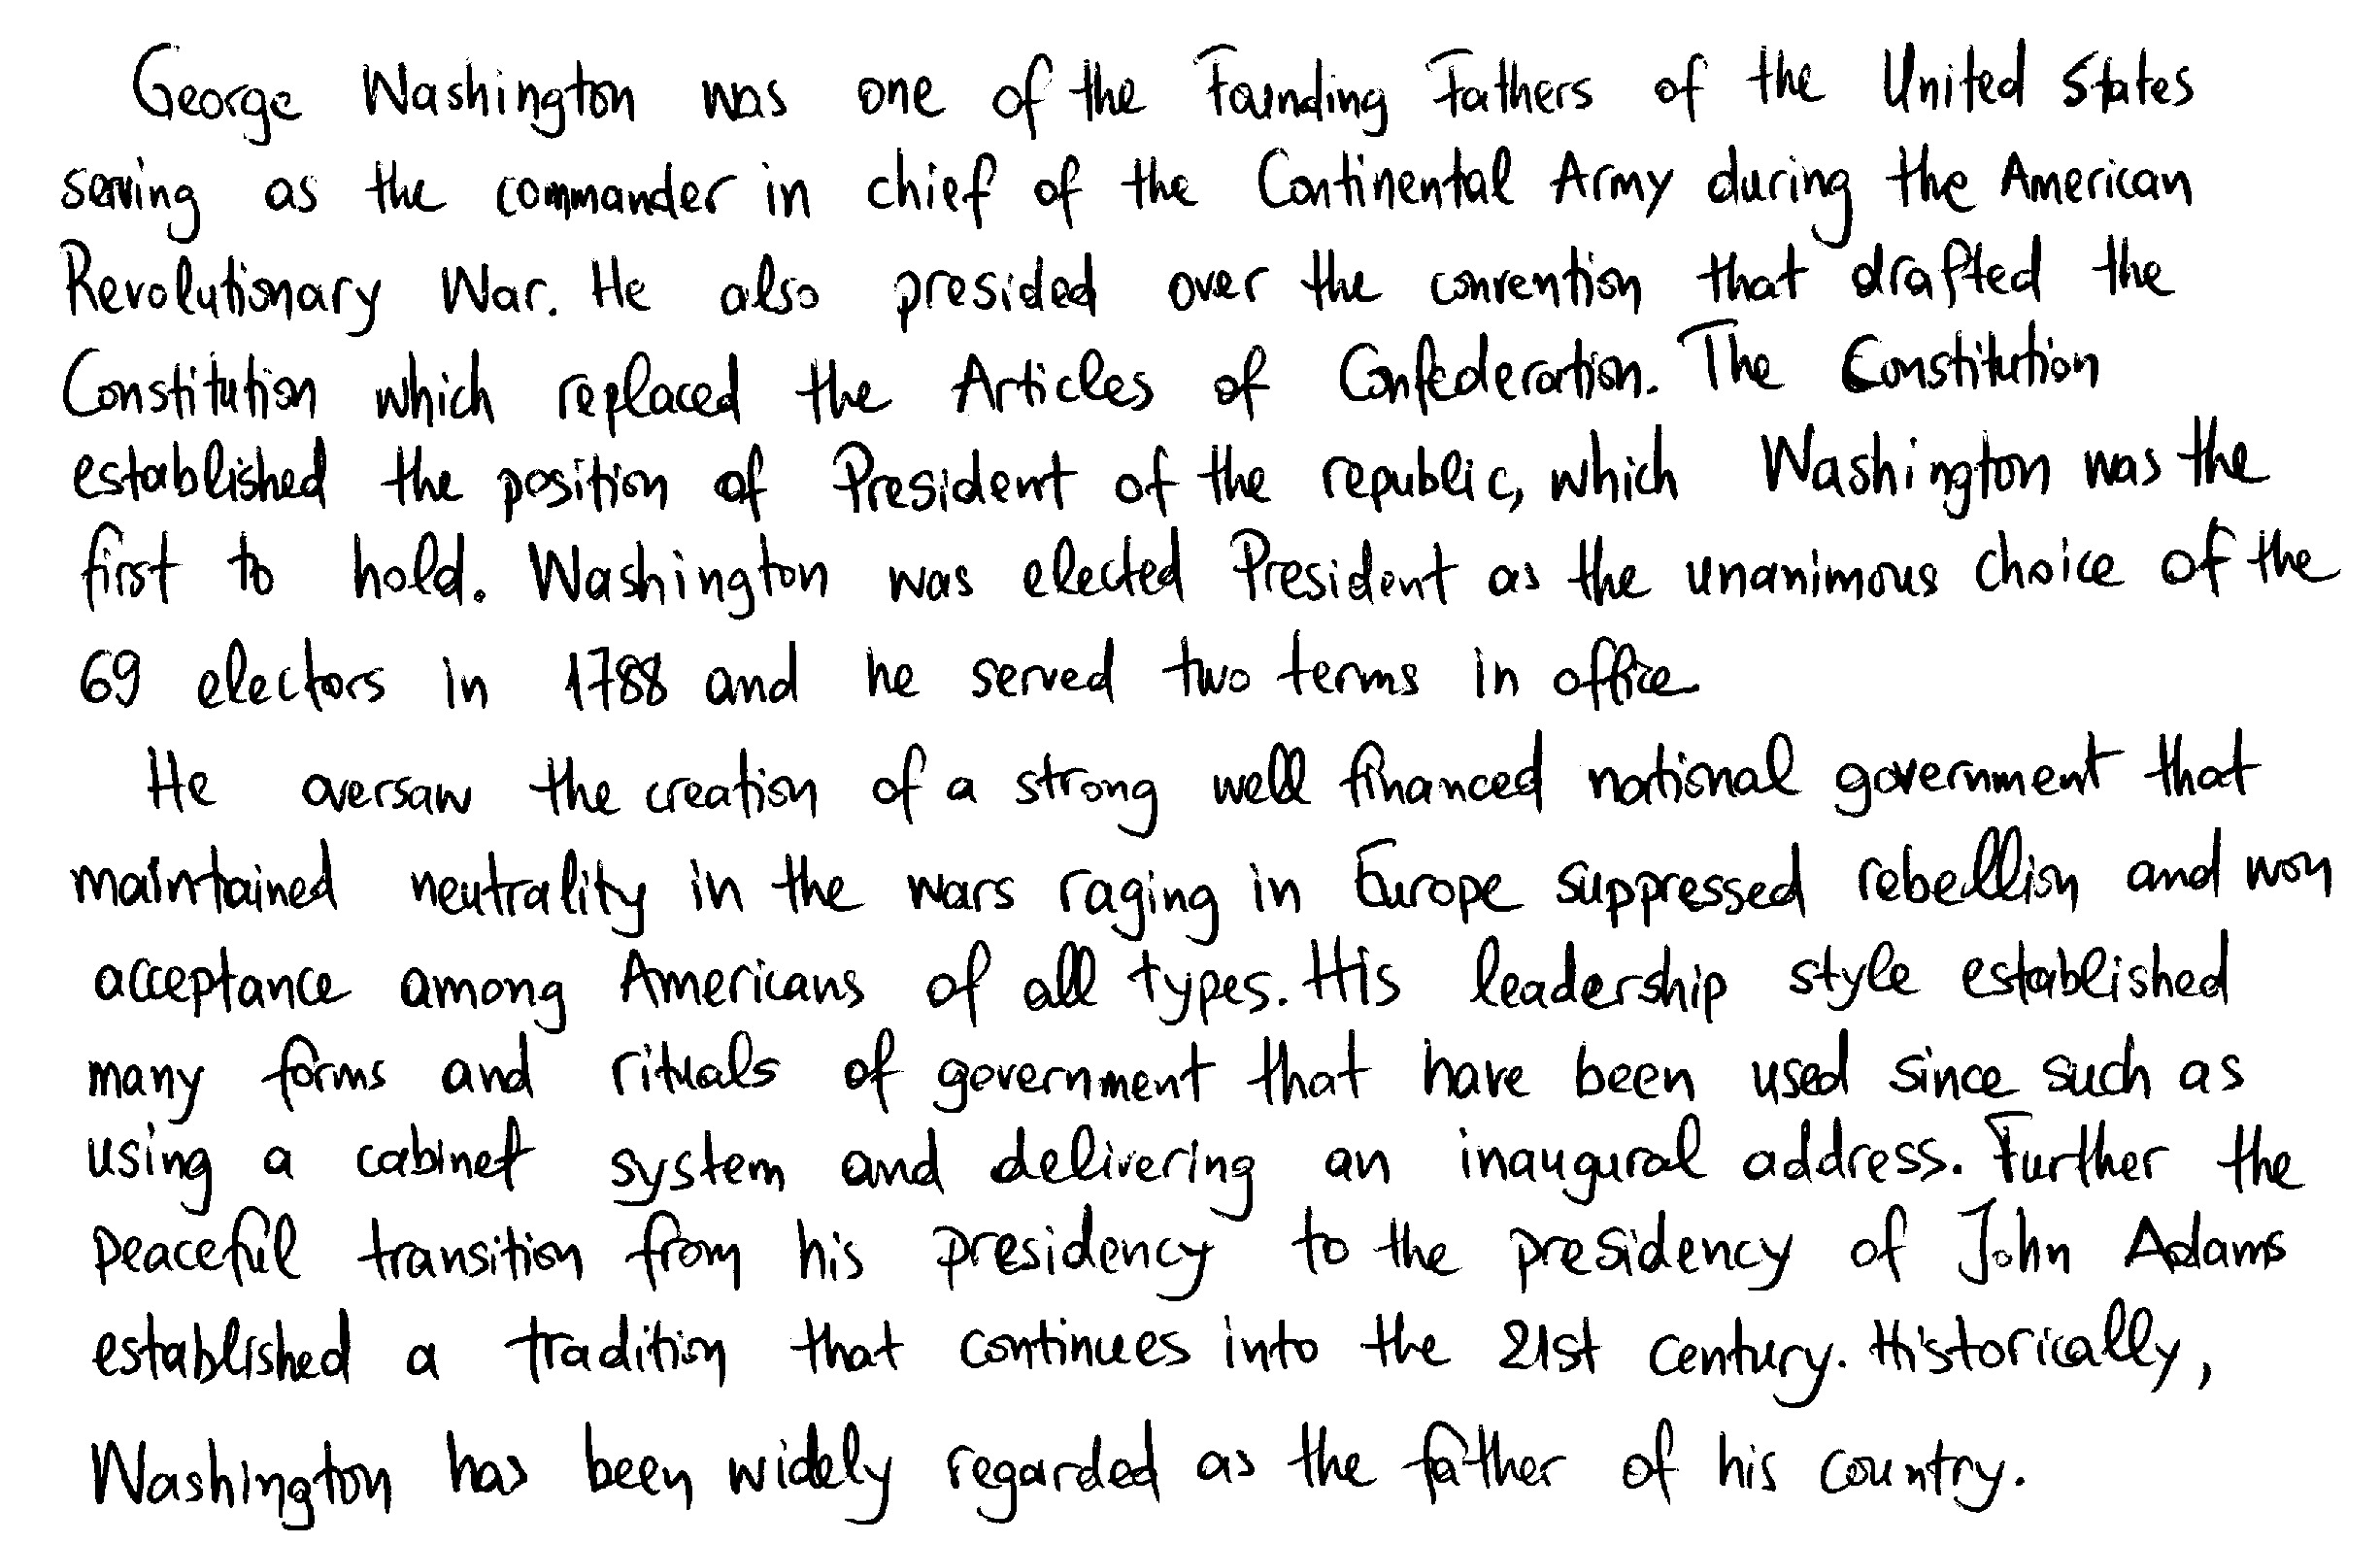 George Washington was one of the Founding Fathers of the United States
serving as the commander in chief of the Continental Army during the American
Revolutionary War. He also presided over the convention that drafted the
Constitution which replaced the Articles of Confederation. The Constitution
established the position of President of the republic, which Washington was the
first to hold. Washington was elected President as the unanimous choice of the
69 electors in 1788 and he served two terms in office
He oversaw the creation of a strong well financed national government that
maintained neutrality in the wars raging in Europe suppressed rebellion and won
acceptance among Americans of all types. His leadership style established
many forms and rituals of government that have been used since such as
using a cabinet system and delivering an inaugural address. Further the
peaceful transition from his presidency to the presidency of John Adams
established a tradition that continues into the 21st century. Historically,
Washington has been widely regarded as the father of his country.